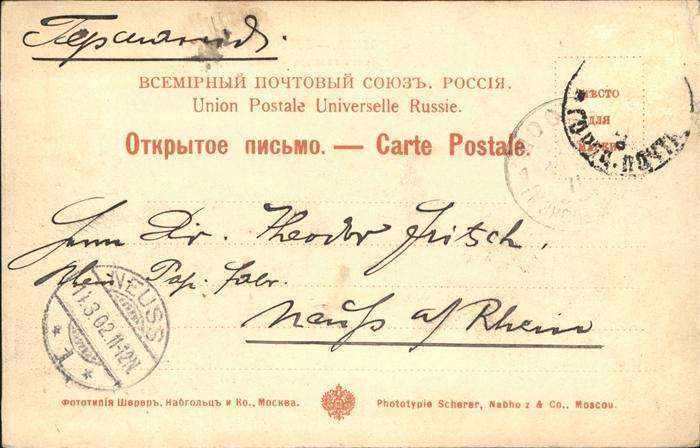 Германія.
ВСЕМІРНЫЙ ПОЧТОВЫЙ СОЮЗЪ. РОССІЯ.
Union Postale Universelle Russie.
МѢСТО
ДЛЯ
МАРКИ
Открытое письмо. — Carte Postale.
ГОРОД. ПОЧТА
Herrn Dir. Theodor Fritsch,
Rhein Pap. Fabr.
Neuß a/Rhein
NEUSS
11.3.02.11-12N
* 1 *
Фототипія Шереръ, Набгольцъ и Ко., Москва.
Phototypie Scherer, Nabho z & Co., Moscou.